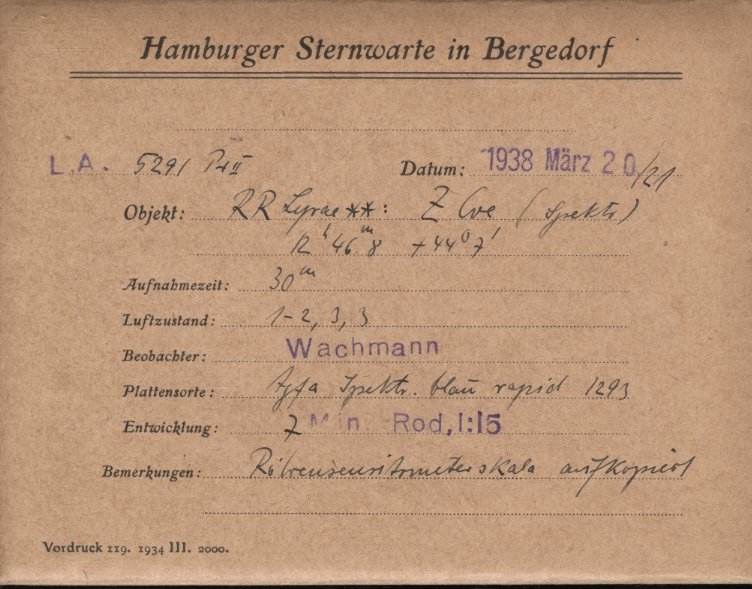 Hamburger Sternwarte in Bergedorf
L.A. 5291 Pr II Datum: 1938 März 20/21
Objekt: RR Lyrae **: Z CVn (Spektr)
12ʰ 46ᵐ.8 +44° 7'
Aufnahmezeit: 30ᵐ
Luftzustand: 1-2, 3, 3
Beobachter: Wachmann
Plattensorte: Agfa Spektr. blau rapid 1293
Entwicklung: 7 Min. Rod, 1:15
Bemerkungen: Röhrensensitometerskala aufkopiert
Vordruck 119. 1934 III. 2000.